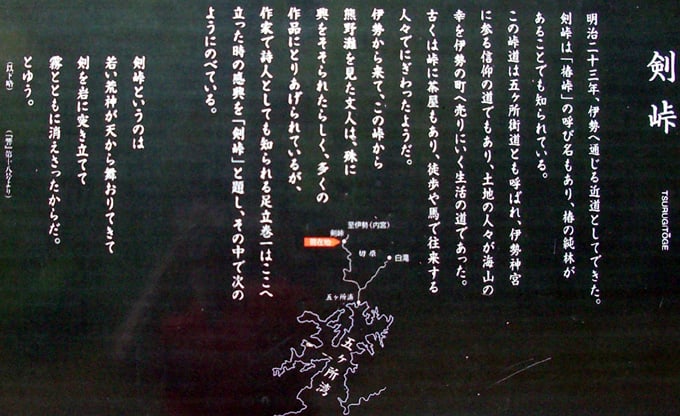 剣峠
TSURUGITŌGE
明治二十三年、伊勢へ通じる近道としてできた。
剣峠は「椿峠」の呼び名もあり、椿の純林が
あることでも知られている。
この峠道は五ヶ所街道とも呼ばれ、伊勢神宮
に参る信仰の道でもあり、土地の人々が海山の
幸を伊勢の町へ売りにいく生活の道であった。
古くは峠に茶屋もあり、徒歩や馬で往来する
人々でにぎわったようだ。
伊勢から来て、この峠から
熊野灘を見た文人は、殊に
興をそそられたらしく、多くの
作品にとりあげられているが、
作家で詩人としても知られる足立巻一はここへ
立った時の感興を「剣峠」と題し、その中で次の
ようにのべている。
剣峠というのは
若い荒神が天から舞おりてきて
剣を岩に突き立てて
霧とともに消えさったからだ。
とゆう。
(以下略)
至伊勢(内宮)
剣峠
現在地
切原
白滝
五ヶ所浦
五ヶ所湾